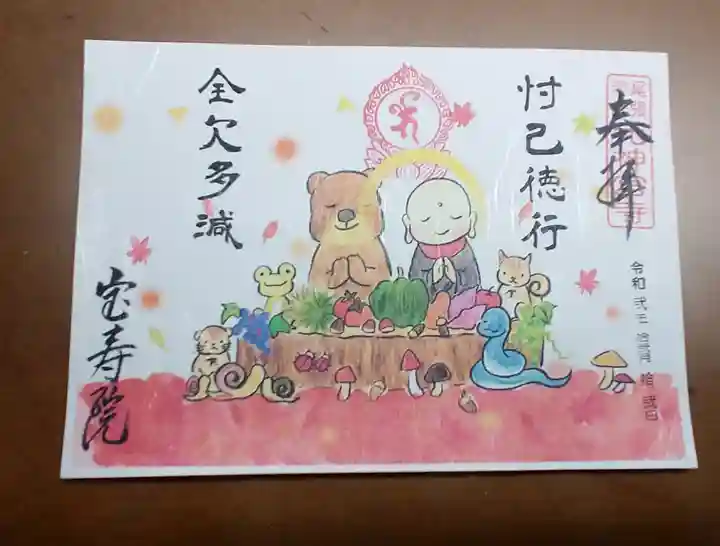 奉拝
令和弐年拾月拾弐日
忖己徳行
全欠多減
宝寿院